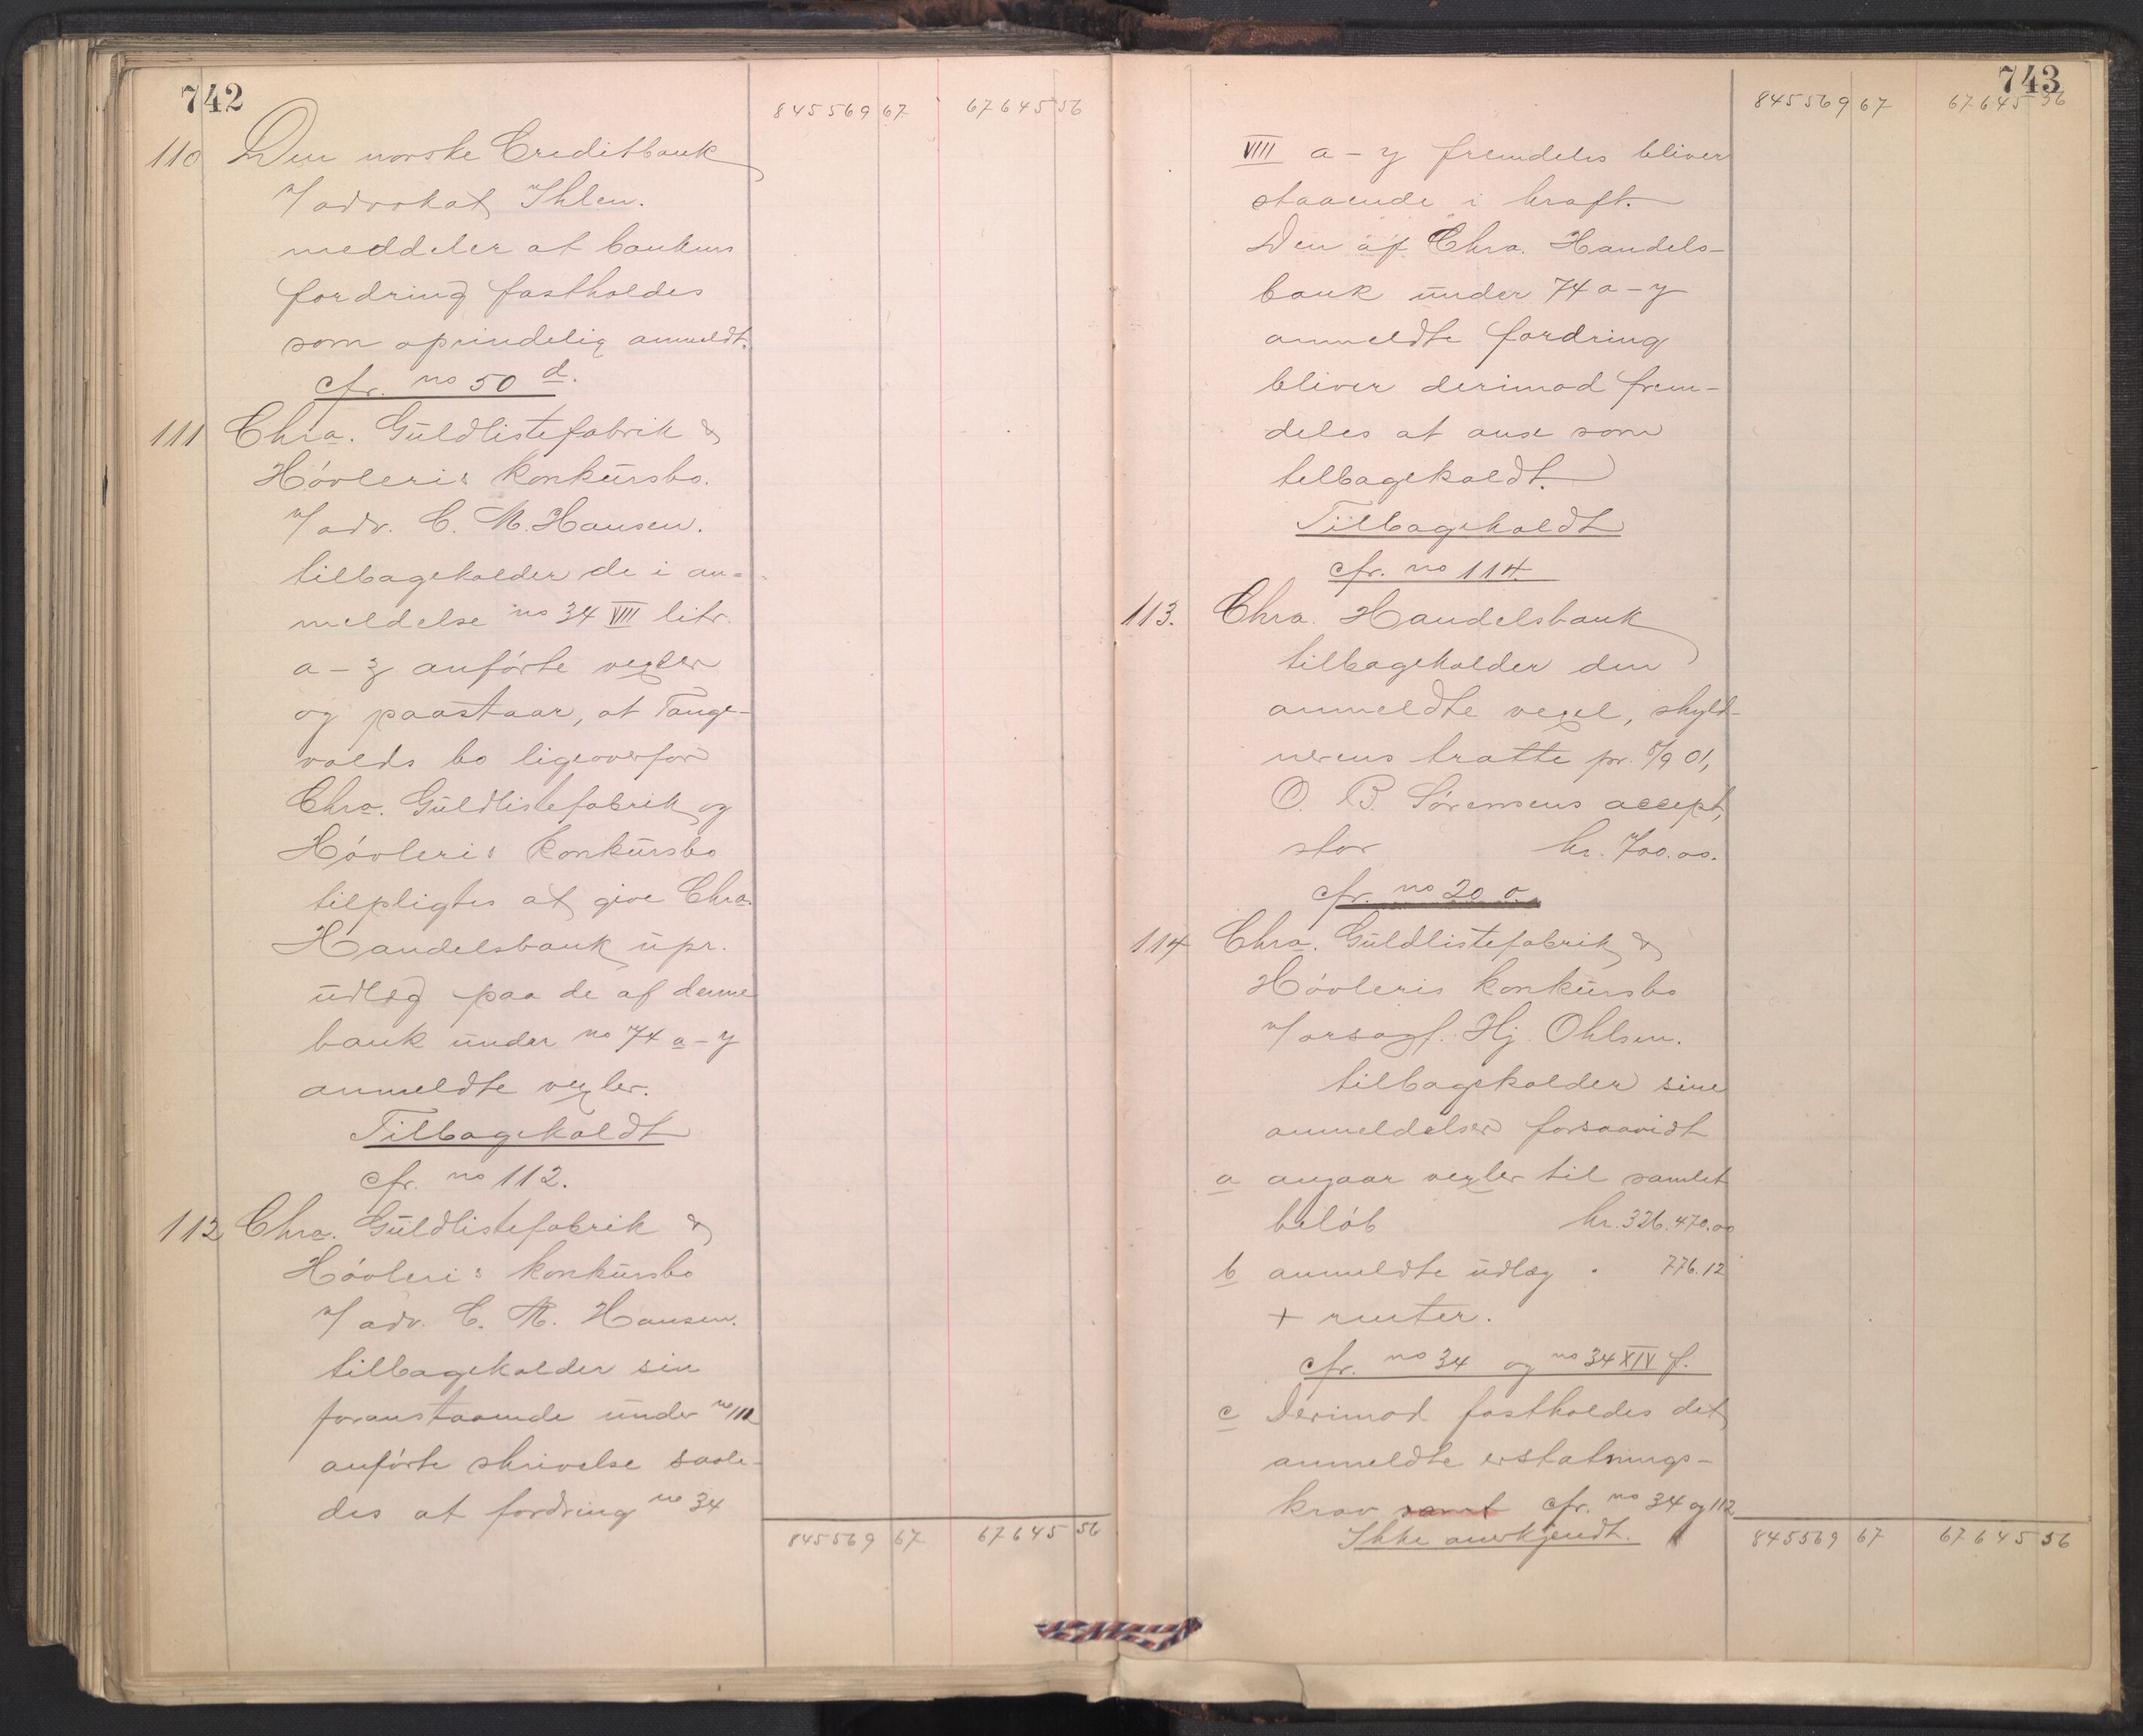 742
845569 67 67645 56
110 Den norske Creditbank
v/ advokat Ihlen.
meddeler at bankens
fordring fastholdes
som oprindelig anmeldt.
cfr. no 50 d.
111 Chra. Guldlistefabrik &
Høvleris konkursbo.
v/ adv. C. M. Hansen.
tilbagekalder de i an-
meldelse no 34 VIII litr.
a – z anførte vexler
og paastaar, at Tange-
valds bo ligeoverfor
Chra. Guldlistefabrik og
Høvleris konkursbo
tilpligtes at give Chra.
Handelsbank upr.
udlæg paa de af denne
bank under no 74 a – y
anmeldte vexler.
Tilbagekaldt
cfr. no 112.
112 Chra. Guldlistefabrik &
Høvleris konkursbo
v/ adv. C. M. Hansen.
tilbagekalder sin
foranstaaende under no 111
anførte skrivelse saale-
des at fordring no 34
845569 67 67645 56
743
845569 67 67645 56
VIII a – y fremdeles bliver
staaende i kraft.
Den af Chra. Handels-
bank under 74 a – y
anmeldte fordring
bliver derimod frem-
deles at anse som
tilbagekaldt.
Tilbagekaldt
cfr. no 114.
113. Chra. Handelsbank
tilbagekalder den
anmeldte vexel, skyld-
nerens tratte pr. 5/9 01,
O. B. Sørensens accept,
stor kr. 700.00.
cfr. no 20 o.
114 Chra. Guldlistefabrik &
Høvleris konkursbo
v/ orsagf. Hj. Ohlsen.
tilbagekalder sine
anmeldelser forsaavidt
a angaar vexler til samlet
beløb kr. 326.470.00
b anmeldte udlæg " 776.12
+ renter.
cfr. no 34 og no 34 XIV f.
c Derimod fastholdes det
anmeldte erstatnings-
krav samt cfr. no 34 og 112
Ikke anerkjendt.
845569 67 67645 56